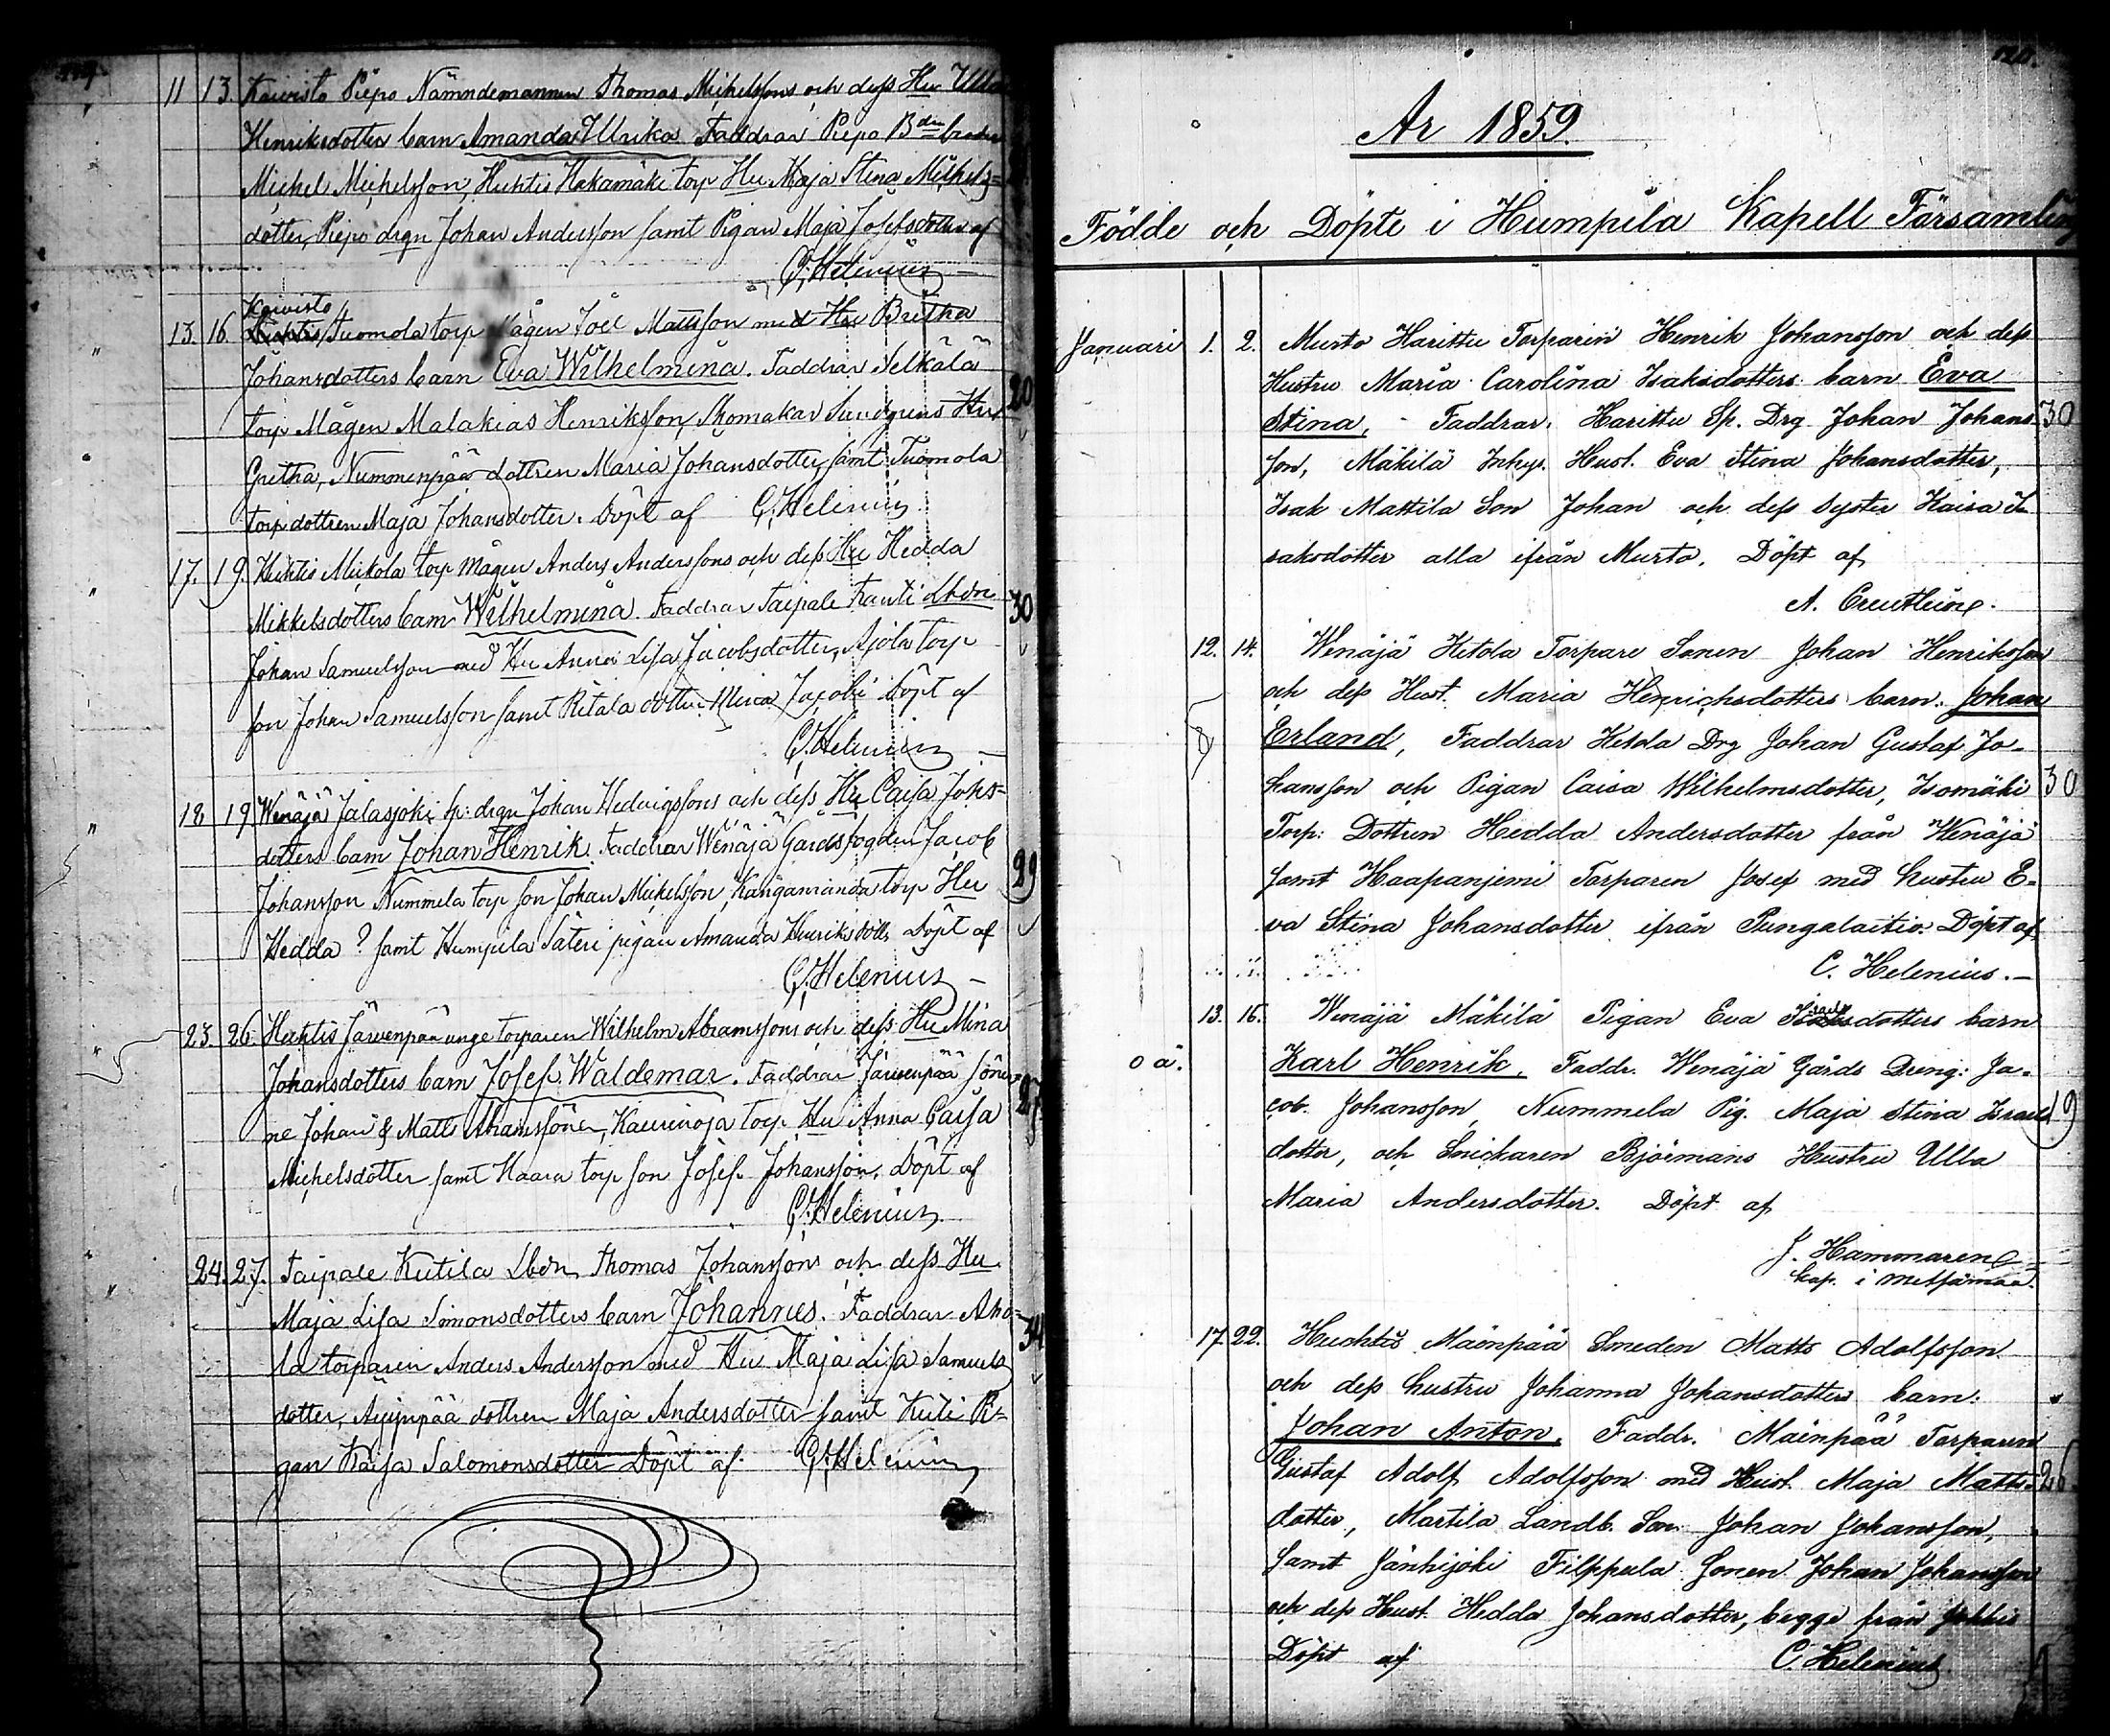 11 13. Koivisto Piepo Nämndemannen Thomas Michelssons och dess Hu Ulla
Henriksdotters barn Amanda Ulrika. Faddrar Piepo Bdn
Michel Michelsson, Huhtis Hakamäki torp Hu Maja Stina Michels=
dotter, Piepo drgn Johan Andersson samt Pigan Maja Josefsdotter af
C. Helenius
Koivisto
13. 16. Tuomola torp Mågen Joel Mattsson med Hu Britha
Johansdotters barn Eva Wilhelmina. Faddrar Selkälä
20
torp Mågen Malakias Henriksson, Skomakar Sundgrens Hu
Gretha, Nummenpää dottren Maria Johansdotter, samt Tuomola
torp dottren Maja Johansdotter. Döpt af C. Helenius
17. 19. Huhtis Mickola torp mågen Anders Anderssons och dess Hu Hedda
Mikkelsdotters barn Wilhelmina. Faddrar Taipale Kauti Lbdn
30
Johan Samuelsson med Hu Anna Lisa Jacobsdotter, Ajola torp
son Johan Samuelsson samt Ritala dotter Mina Jacobi Döpt af
C. Helenius
18 19 Wenäjä Jalasjoki sp: drgn Johan Hedvigssons och dess Hu Caisa Johs=
dotters barn Johan Henrik. Faddrar Wenäjä Gårdsfogden Jacob
29
Johansson Nummela torp son Johan Michelsson, Kangamända torp Hu
Hedda ? samt Humpila Säteri pigan Amanda Henriksdott. Döpt af
C. Helenius
23. 26. Huhtis Järvenpää unge torparen Wilhelm Abramssons och dess Hu Mina
Johansdotters barn Josef Waldemar. Faddrar Järvenpää söner=
27
ne Johan & Matts Abramssöner, Kaurinoja torp Hu Anna Caisa
Michelsdotter samt Haara torp son Josef Johansson. Döpt af
C. Helenius
24. 27. Taipale Kutila Lbdn Thomas Johanssons och dess Hu
Maja Lisa Simonsdotters barn Johannes. Faddrar Aho=
34
la torparen Anders Andersson med Hu Maja Lisa Samuels
dotter, Äijänpää dottren Maja Andersdotter samt Kuti Pi=
gan Kaisa Salomonsdotter Döpt af C. Helenius
År 1859.
Födde och Döpte i Humpila Kapell Församling
Januari 1. 2. Murto Harittu Torparen Henrik Johansson och dess
Hustru Maria Carolina Isaksdotters barn Eva
Stina, - Faddrar. Harittu Sp. Drg Johan Johans- 30
son, Mäkilä Inhys. Hust. Eva Stina Johansdotter,
Isak Mattila Son Johan och dess syster Kaisa I-
saksdotter alla ifrån Murto. Döpt af
A. Creutlein.
12. 14. Wenäjä Ketola Torpare Sonen Johan Henriksson
och dess Hust. Maria Henrichsdotters barn. Johan
Erland, Faddrar Ketola Drg Johan Gustaf Jo-
hansson och Pigan Caisa Wilhelmsdotter, Isomäki 30
Torp: Dottren Hedda Andersdotter från Wenäjä
samt Haapanjemi Torparen Josef med hustru E-
va Stina Johansdotter ifrån Pungalaitio. Döpt af
C. Helenius.
13. 16. Wenäjä Mäkilä Pigan Eva Israelsdotters barn
o ä. Karl Henrik. Faddr. Wenäjä Gårds Dreng: Ja-
cob. Johansson, Nummela Pig. Maja Stina Israels 19
dotter, och Snickaren Björmans Hustru Ulla
Maria Andersdotter. Döpt af
J. Hammaren
kap. i Metsämaa.
17 22. Huchtis Mäenpää Smeden Matts Adolfsson
och dess hustru Johanna Johansdotters barn:
Johan Anton. Faddr. Mäenpää Torparen
Gustaf Adolf Adolfsson med Hust. Maja Matts- 26
dotter, Martila Landb. Son Johan Johansson,
Samt Jänhijoki Filppula Sonen Johan Johansson
och dess Hust. Hedda Johansdotter, begge från Jokkis
Döpt af C. Helenius